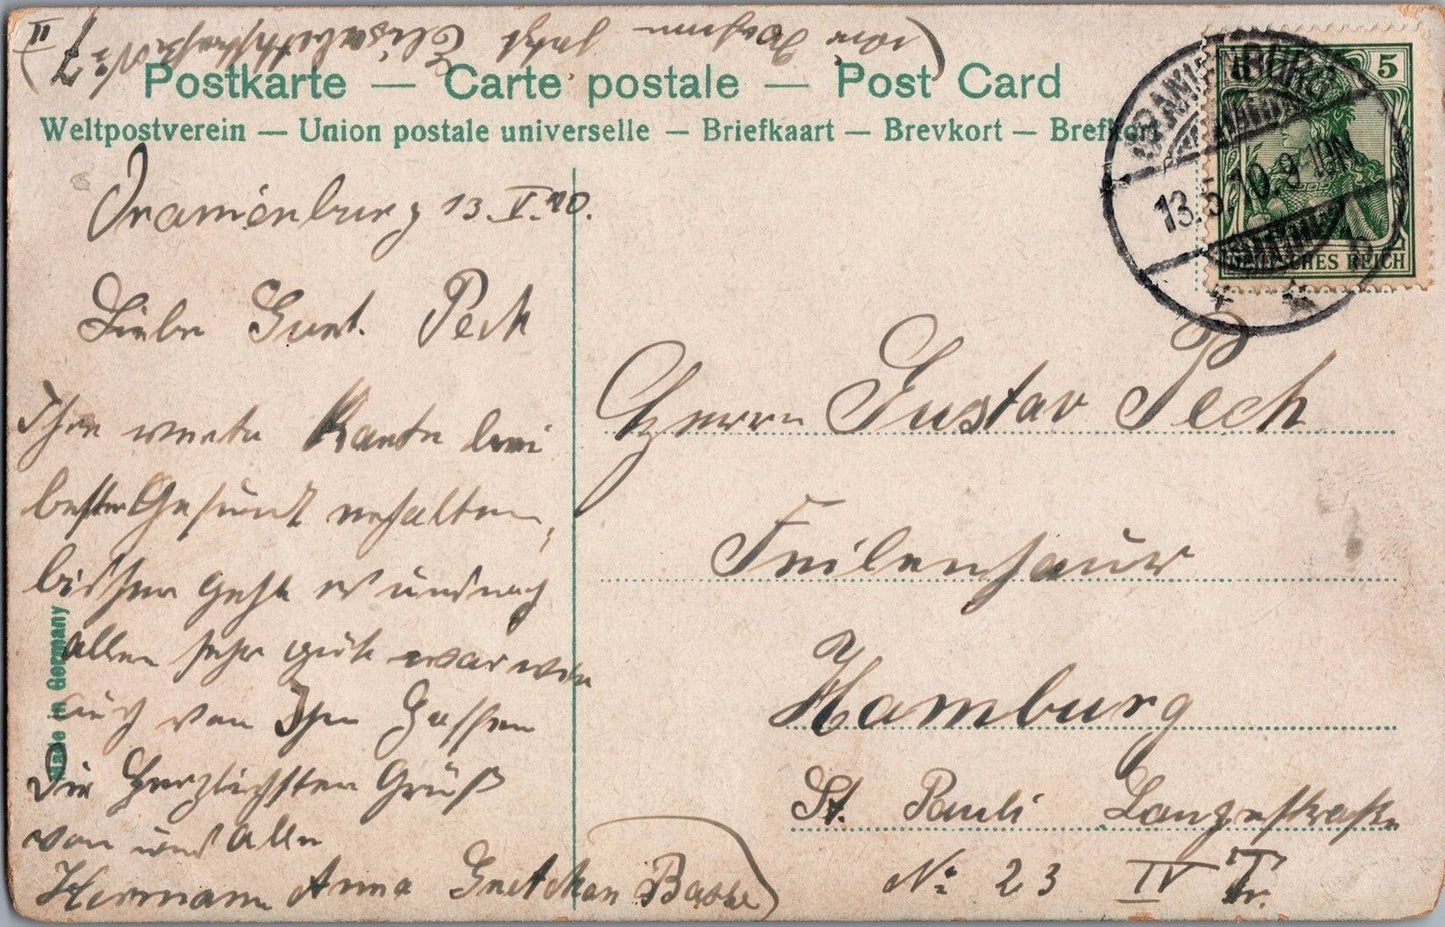 (wir wohnen jetzt Elisabethstraße No 7 II)
Postkarte — Carte postale — Post Card
Weltpostverein — Union postale universelle — Briefkaart — Brevkort — Brefkort
Oranienburg 13.V.10.
Liebe Gust. Pech
Ihre werte Karte bei
bester Gesundt erhalten,
bisher geht es uns noch
allen sehr gut was wir
auch von Ihn hoffen
Die Herzlichsten Grüß
von uns Allen
Herrmann Anna Gretchen Basse
Made in Germany
ORANIENBURG
13.5.10.9-10N
5
DEUTSCHES REICH
Herrn Gustav Pech
Feilenhauer
Hamburg
St. Pauli Langestraße
No 23 IV Tr.